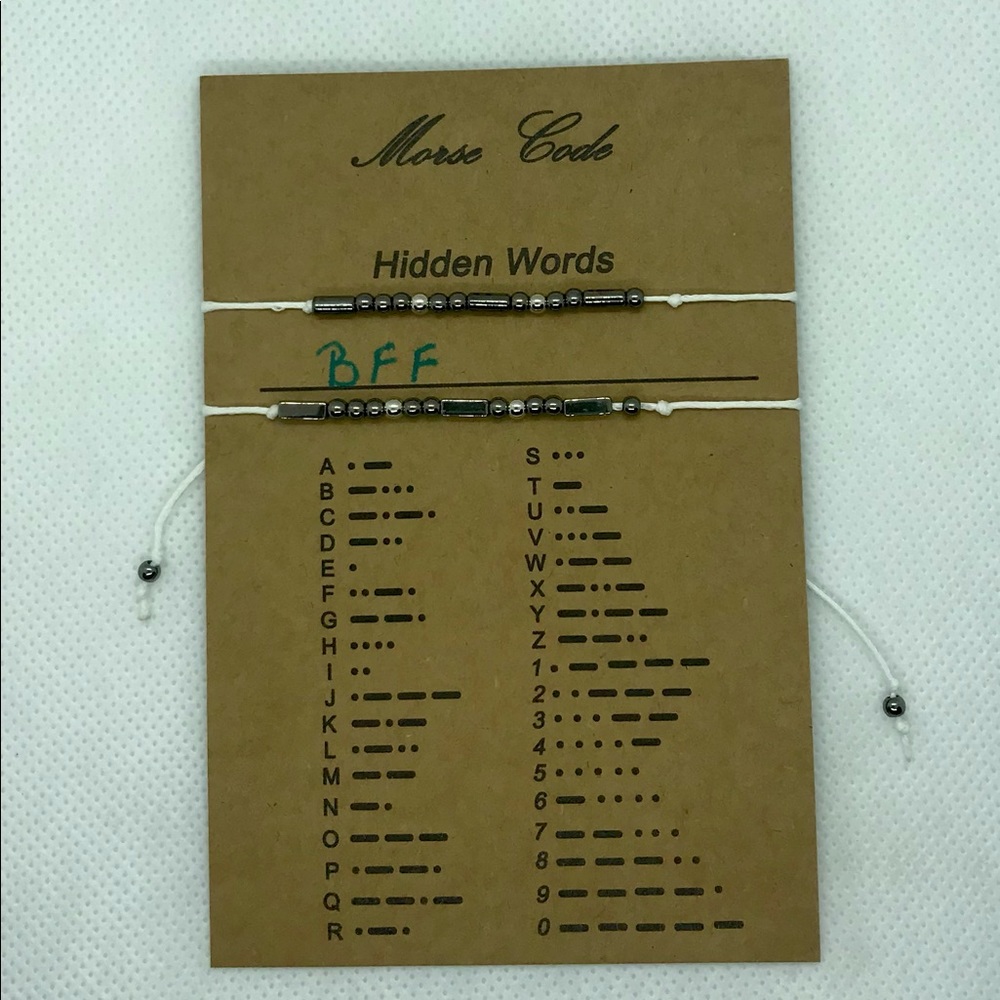 Morse Code
Hidden Words
BFF
A •—
B —•••
C —•—•
D —••
E •
F ••—•
G ——•
H ••••
I ••
J •———
K —•—
L •—••
M ——
N —•
O ———
P •——•
Q ——•—
R •—•
S •••
T —
U ••—
V •••—
W •——
X —••—
Y —•——
Z ——••
1 •————
2 ••———
3 •••——
4 ••••—
5 •••••
6 —••••
7 ——•••
8 ———••
9 ————•
0 —————